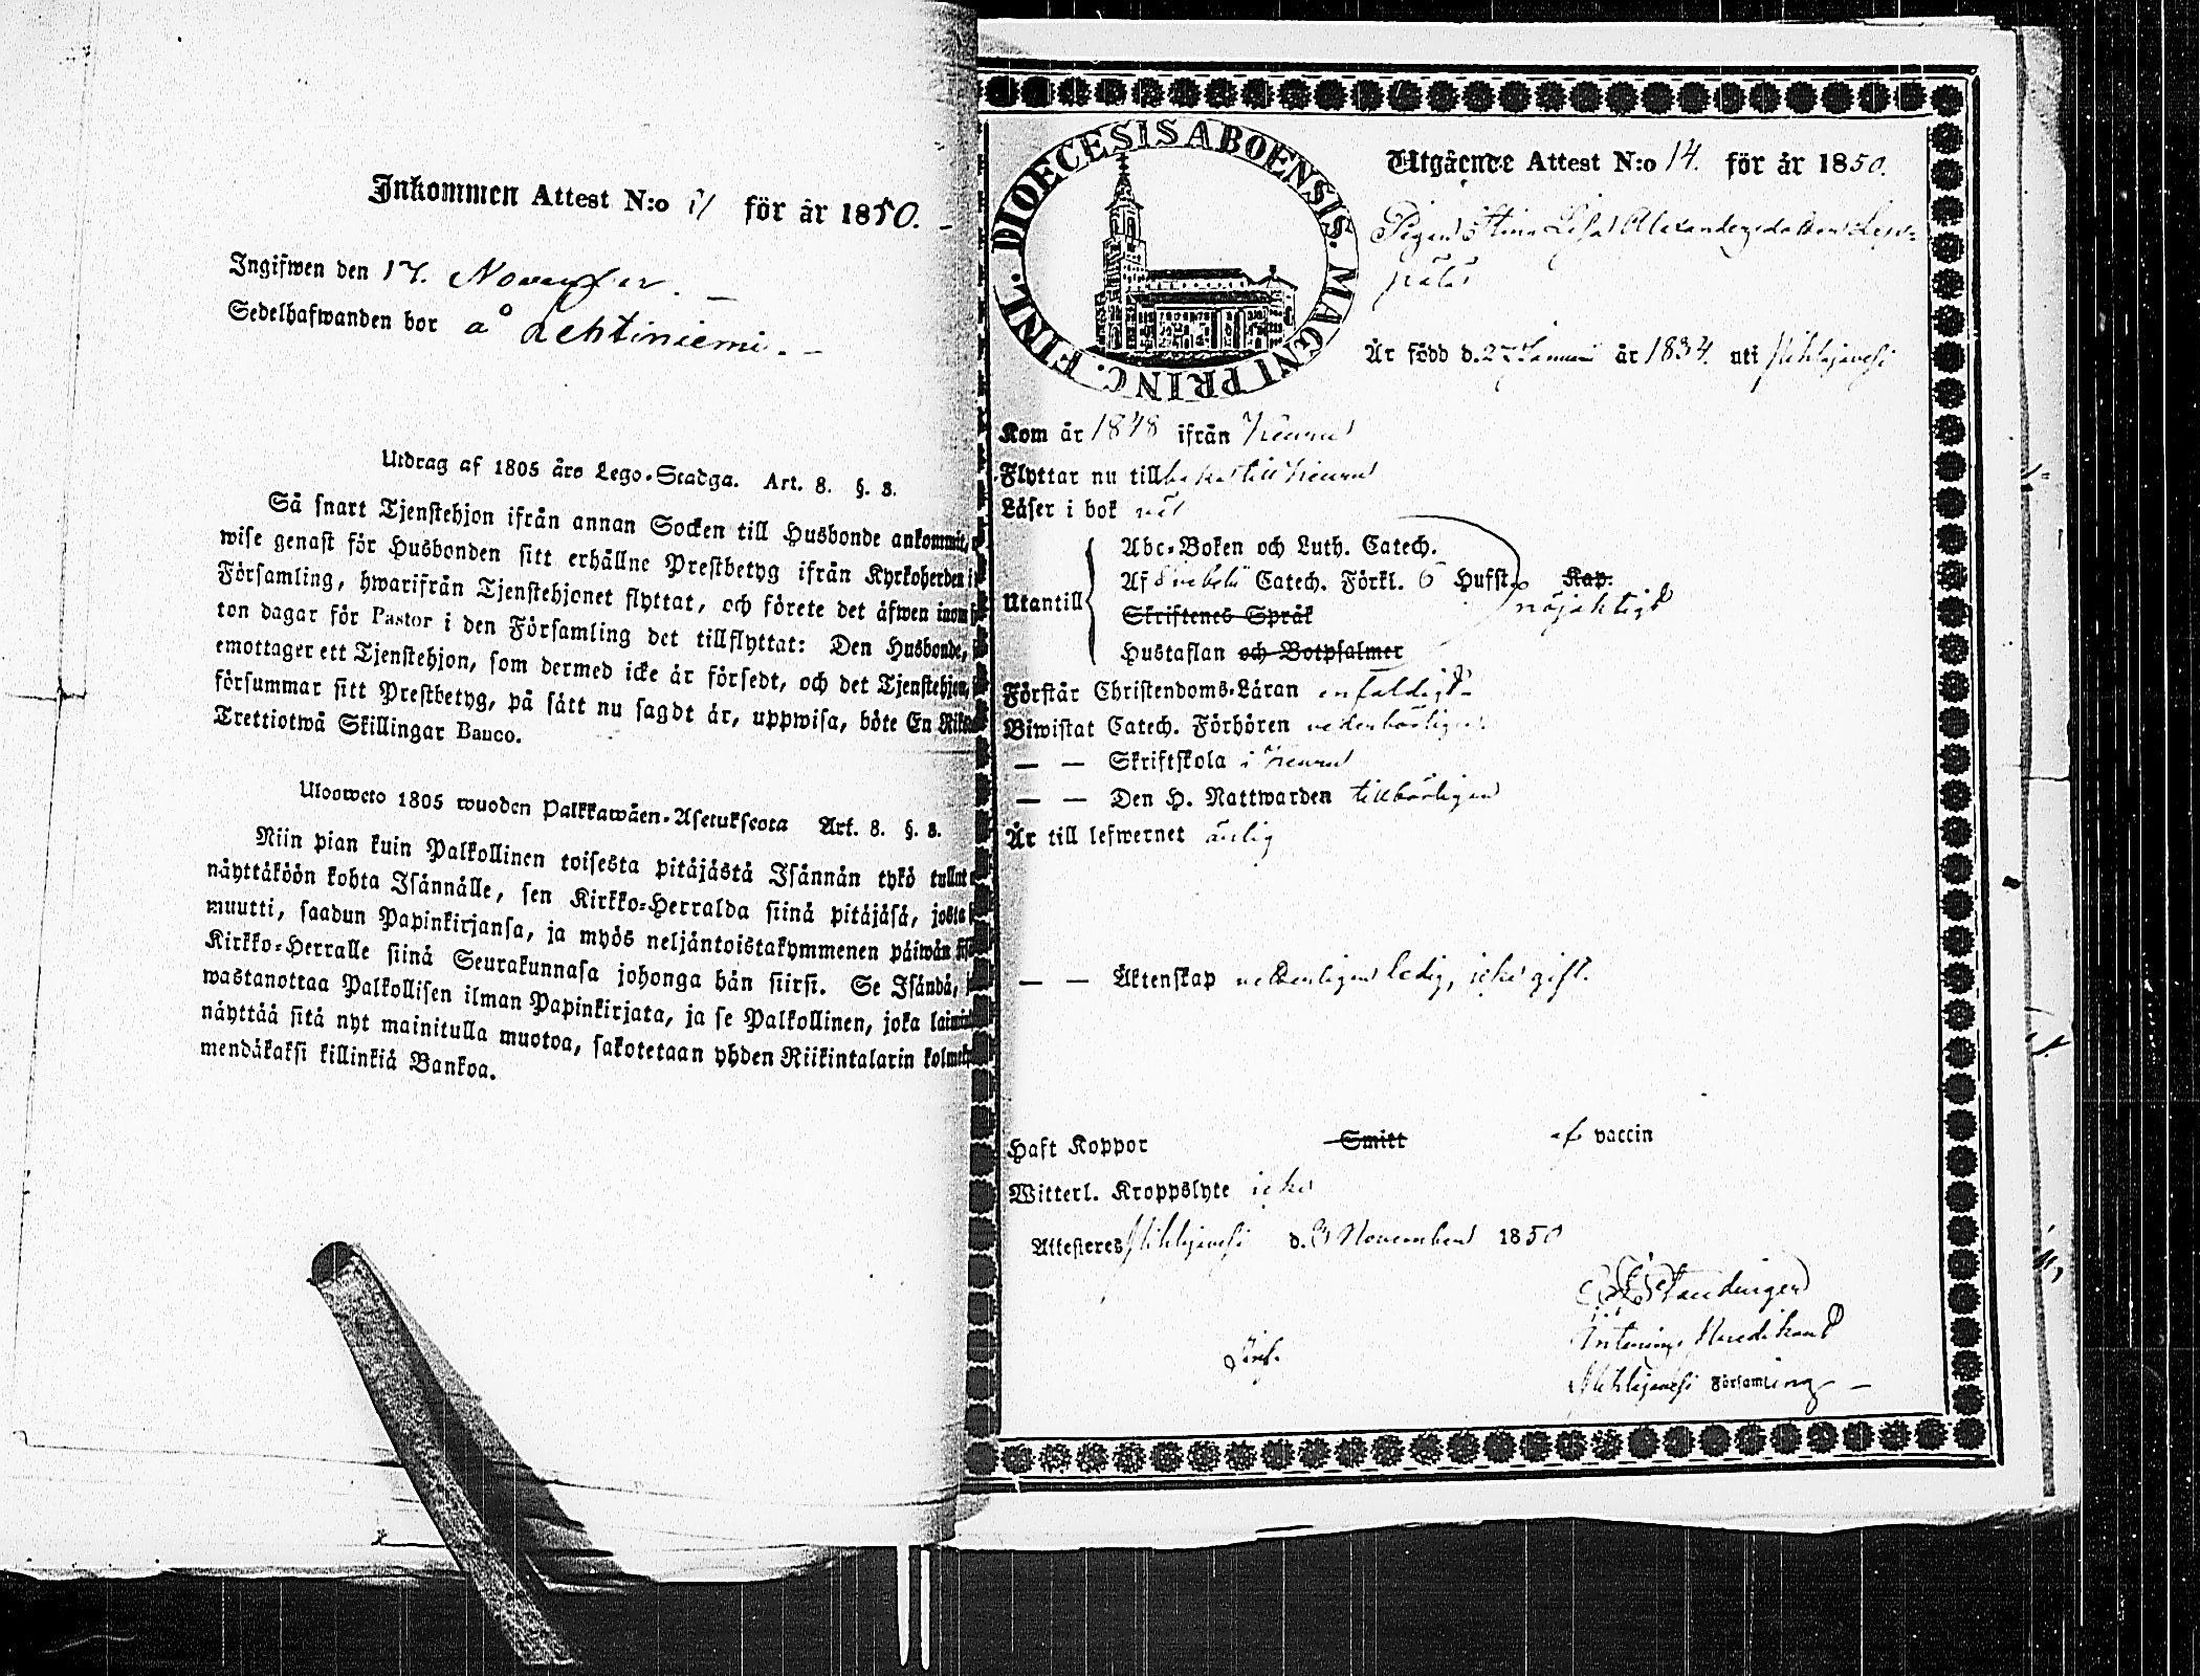 Inkommen Attest N:o för år 1850.
Ingifwen den 17. November.
Sedelhafwanden bor å Lehtiniemi.
Utdrag af 1805 års Lego-Stadga. Art. 8. §. 8.
Så snart Tjenstehjon ifrån annan Socken till Husbonde ankommit,
wise genast för Husbonden sitt erhållne Prestbetyg ifrån Kyrkoherden i
Församling, hwarifrån Tjenstehjonet flyttat, och förete det äfwen inom
ton dagar för Pastor i den Församling det tillflyttat: Den Husbonde,
emottager ett Tjenstehjon, som dermed icke är försedt, och det Tjenstehjon,
försummar sitt Prestbetyg, på sätt nu sagdt är, uppwisa, böte En Riks
Trettiotwå Skillingar Banco.
Ulosweto 1805 wuoden Palkkawäen-Asetuksesta Art. 8. §. 8.
Niin pian kuin Palkollinen toisesta pitäjästä Isännän tykö tullut
näyttäköön kohta Isännälle, sen Kirkko-Herralda siinä pitäjäsä, josta
muutti, saadun Papinkirjansa, ja myös neljäntoistakymmenen päiwän
Kirkko-Herralle siinä Seurakunnasa johonga hän siirsi. Se Isändä,
wastanottaa Palkollisen ilman Papinkirjata, ja se Palkollinen, joka
näyttää sitä nyt mainitulla muotoa, sakotetaan yhden Riikintalarin kolme
mendäkaksi killinkiä Bankoa.
DIOECESIS ABOENSIS. MAGNI PRINC. FINL.
Utgående Attest N:o 14. för år 1850.
Pigan Stina Lisa Alexandersdotter
Är född d. 27 Januari år 1834. uti Pihlajavesi
Kom år 1848 ifrån Keuru
Flyttar nu tillbaka till Keuru
Läser i bok väl
Utantill
Abc-Boken och Luth. Catech.
Af Svebelii Catech. Förkl. 6 Hufst. Kap.
nöjaktigt
Skriftenes Språk
Hustaflan och Botpsalmer
Förstår Christendoms-Läran enfaldigt
Biwistat Catech. Förhören vederbörligen
— — Skriftskola i Keuru
— — Den H. Nattwarden tillbörligen
Är till lefwernet ärlig
— — Äktenskap vetterligen ledig, icke gift.
Haft Koppor Smitt af vaccin
Witterl. Kroppslyte icke
Attesteres Pihlajavesi d. November 1850
Standinger
Predikant
Pihlajavesi Församling